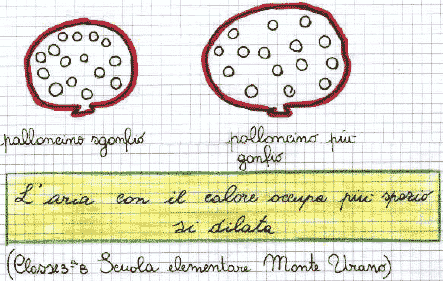 palloncino sgonfio
palloncino più
gonfio
L'aria con il calore occupa più spazio
si dilata
(Classe 3ª B Scuola elementare Monte Urano)